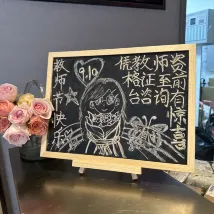 教师节快乐
9.10
凭教师资
格证至前
台咨询有
惊
喜